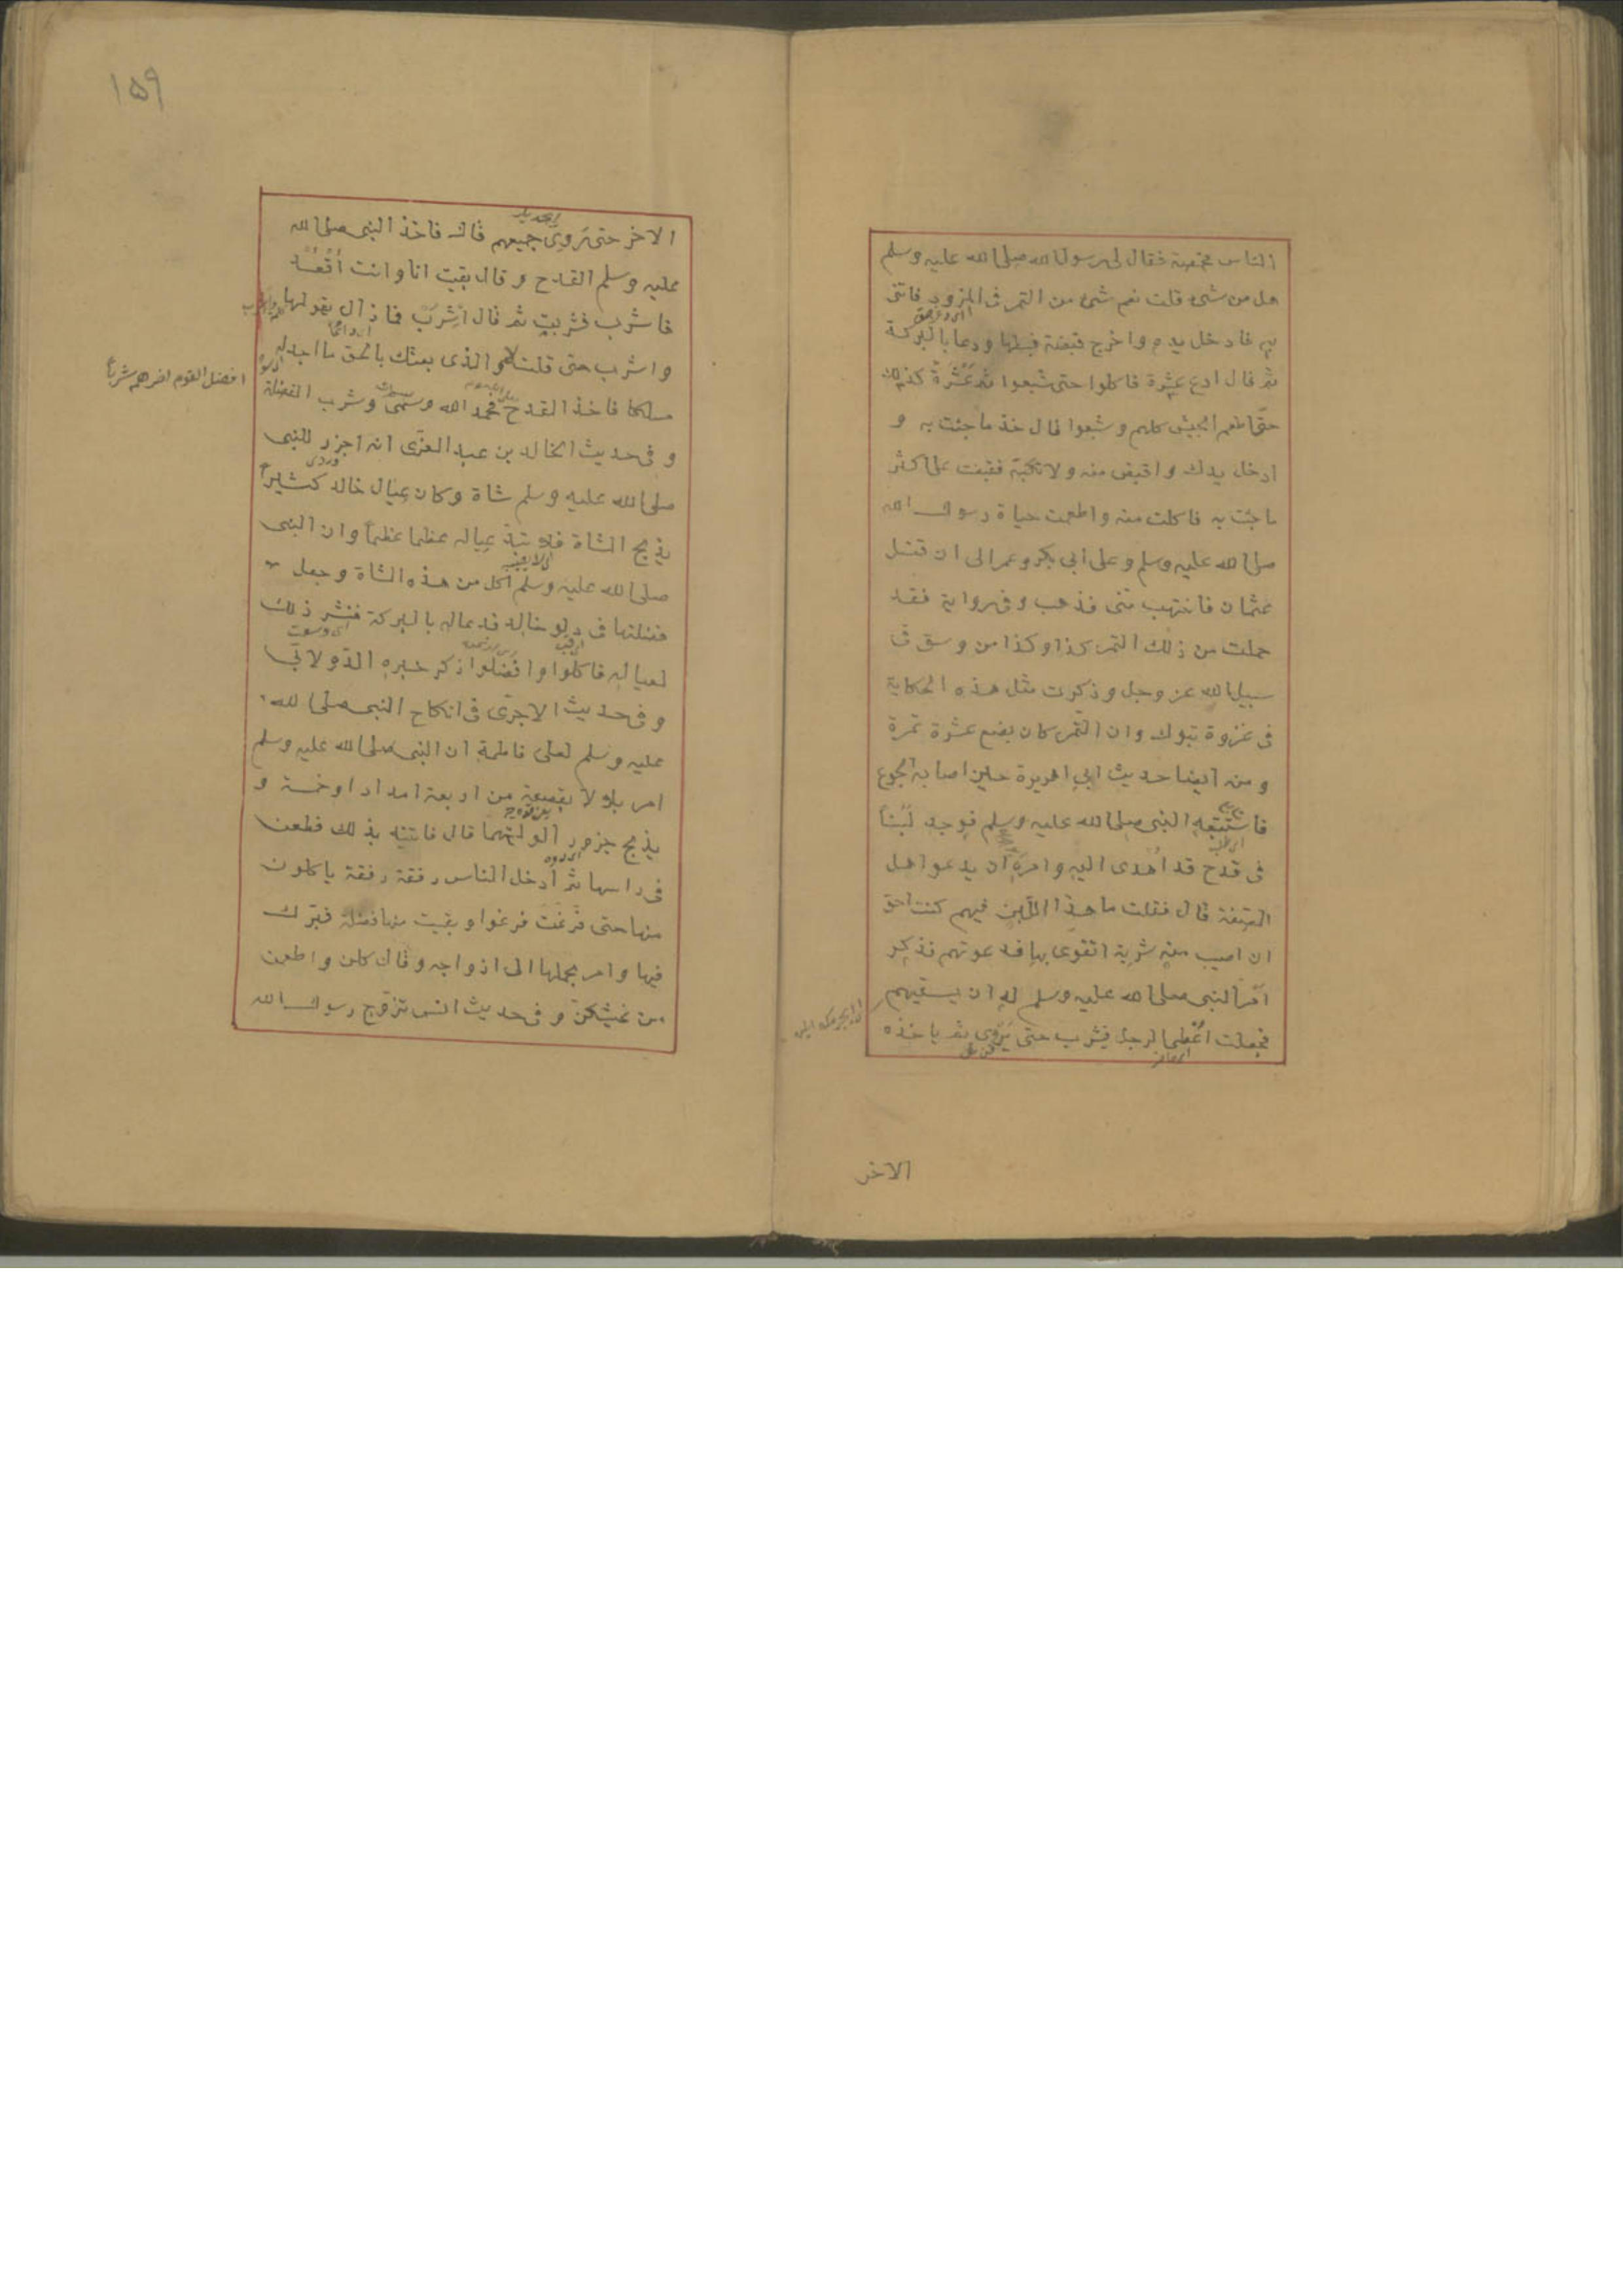 الناس مخمصة فقال لى رسول الله صلى الله عليه وسلم
هل من شئ قلت نعم شئ من التمر فى المزود فاتنى
به فادخل يده واخرج قبضة فبسطها ودعا بالبركة
ثم قال ادع عشرة فاكلوا حتى شبعوا ثم عشرة كذلك
حتى اطعم الجيش كلهم وشبعوا قال خذ ما جئت به و
ادخل يدك واقبض منه ولا تكبه فقبضت على اكثر
ما جئت به فاكلت منه واطعمت حياة رسول الله
صلى الله عليه وسلم وعلى ابى بكر وعمر الى ان قتل
عثمان فانتهب منى فذهب وفى رواية فقد
حملت من ذلك التمر كذا وكذا من وسق فى
سبيل الله عز وجل وذكرت مثل هذه الحكاية
فى غزوة تبوك وان التمر كان بضع عشرة تمرة
ومنه ايضا حديث ابى هريرة حين اصابه الجوع
فاستتبعه النبى صلى الله عليه وسلم فوجد لبنا
فى قدح قد اهدى اليه وامره ان يدعو اهل
الصفة قال فقلت ما هذا اللبن فيهم كنت احق
ان اصيب منه شربة اتقوى بها فدعوتهم فذكر
امر النبى صلى الله عليه وسلم له ان يسقيهم
فجعلت اعطى الرجل فيشرب حتى يروى ثم ياخذه
الاخر
١٥٩
الاخر حتى روى جميعهم قال فاخذ النبى صلى الله
عليه وسلم القدح وقال بقيت انا وانت اقعد
فاشرب فشربت ثم قال اشرب فما زال يقولها
واشرب حتى قلت لا والذى بعثك بالحق ما اجد له
مسلكا فاخذ القدح فحمد الله وسمى وشرب الفضلة
افضل القوم اخرهم شربا
و فى حديث الخالد بن عبد العزى انه اجزر للنبى
صلى الله عليه وسلم شاة وكان عيال خالد كثيرا
يذبح الشاة فلا تبد عياله عظما عظما وان النبى
صلى الله عليه وسلم اكل من هذه الشاة وجعل
فضلتها فى دلو خالد فدعا له بالبركة فنثر ذلك
لعياله فاكلوا وافضلوا ذكر خبره الدولابى
وفى حديث الاجرى فى انكاح النبى صلى الله
عليه وسلم لعلى فاطمة ان النبى صلى الله عليه وسلم
امر بلالا بقصعة من اربعة امداد او خمسة و
يذبح جزور الوليتهما قال فاتيته بذلك فطعن
فى راسها ثم ادخل الناس رفقة رفقة ياكلون
منها حتى فرغت فرغوا وبقيت منها فضلة فبرك
فيها وامر بحملها الى ازواجه وقال كلن واطعمن
من غشيكن و فى حديث انس تزوج رسول الله